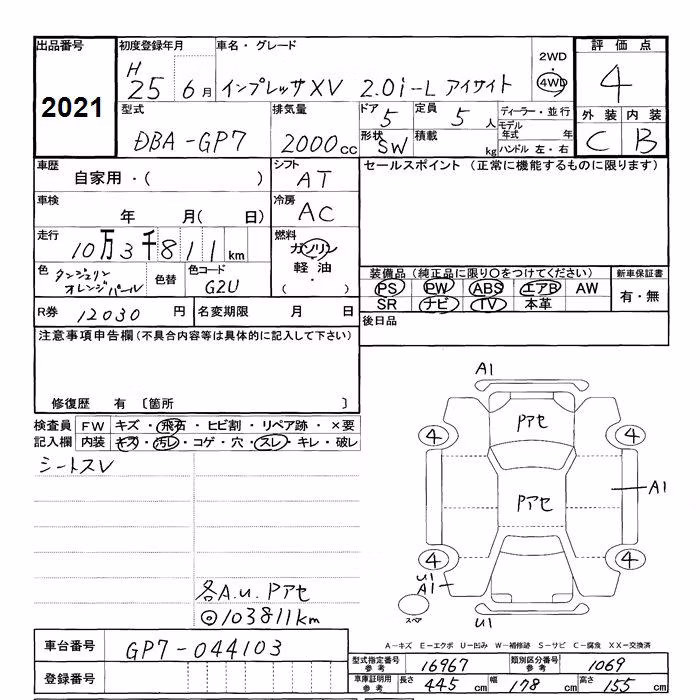 出品番号 初度登録年月 車名・グレード 2WD ・ 4WD 評価点
2021 H 25 6月 インプレッサXV 2.0i-L アイサイト 4
型式 排気量 ドア 定員 ディーラー・並行 外装 内装
DBA-GP7 2000cc 5 5人 モデル年式 年 C B
形状 SW 積載 kg ハンドル 左・右
車歴 シフト セールスポイント (正常に機能するものに限ります)
自家用・( ) AT
車検 冷房
年 月( 日) AC
走行 燃料
10万3千811km ガソリン
軽油
色 色替 色コード ( ・ ) 装備品 (純正品に限り○をつけてください) 新車保証書
タンジェリン
オレンジパール G2U PS PW ABS エアB AW 有・無
SR ナビ TV 本革
R券 12030円 名変期限 月 日 後日品
注意事項申告欄(不具合内容等は具体的に記入して下さい)
修復歴 有 〔箇所 〕
検査員 FW キズ・飛石・ヒビ割・リペア跡・×要
記入欄 内装 キズ・汚レ・コゲ・穴・スレ・キレ・破レ
シートスV
各A.u.Pアセ
◎103811km
A1
Pアセ
4 4
Pアセ
A1
4 4
U1
A1
スペア
U1
A-キズ E-エクボ U-凹み W-補修跡 S-サビ C-腐食 XX-交換済
車台番号 GP7-044103
型式指定番号 参考 16967 類別区分番号 参考 1069
登録番号
車庫証明用 参考 長さ 445cm 幅 178cm 高さ 155cm